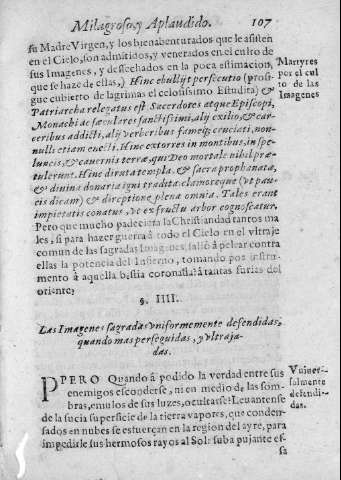 Milagroso, y Aplaudido. 107
su Madre Virgen, y los bienabenturados que le asisten
en el Cielo, son admitidos, y venerados en el cultro de
sus Imagenes, y desechados en la poca estimacion,
que se haze de ellas,) Hinc ebullijt persecutio (prosi-
gue cubierto de lagrimas el celosissimo Estudita) &
Patriarcha relegatus est. Sacerdores atque Episcopi,
Monachi & sæculares sanctissimi, alij exilio, & car-
ceribus addicti, alij verberibus fameq; cruciati, non-
nulli etiam enecti. Hinc extorres in montibus, in spe-
luncis, & cavernis terræ, qui Deo mortale nihil præ-
tulerunt. Hinc diruta templa, & sacra prophanata,
& divina donaria igni tradita: clamoreque (vt pau-
cis dicam) & direptione plena omnia. Tales erant
impietatis conatus, vt ex fructu arbor cognoscatur.
Pero que mucho padeciera la Christiandad tantos ma
les, si para hazer guerra à todo el Cielo en el vltraje
comun de las sagradas Imagenes, salio à pelear contra
ellas la potencia del Infierno, tomando por instru-
mento à aquella bestia coronada? à tantas furias del
oriente?
Martyres
por el cul
to de las
Imagenes
§. IIII.
Las Imagenes sagradas vniformemente defendidas,
quando mas perseguidas, y vltraja-
das.
PPERO Quando â podido la verdad entre sus
enemigos esconderse, ni en medio de las som-
bras, emulos de sus luzes, ocultarse? Leuantense
de la sucia superficie de la tierra vapores, que conden-
sados en nubes se estuerçan en la region del ayre, para
impedirle sus hermosos rayos al Sol: suba pujante es-
sa
Vniuer-
salmente
defendi-
das.